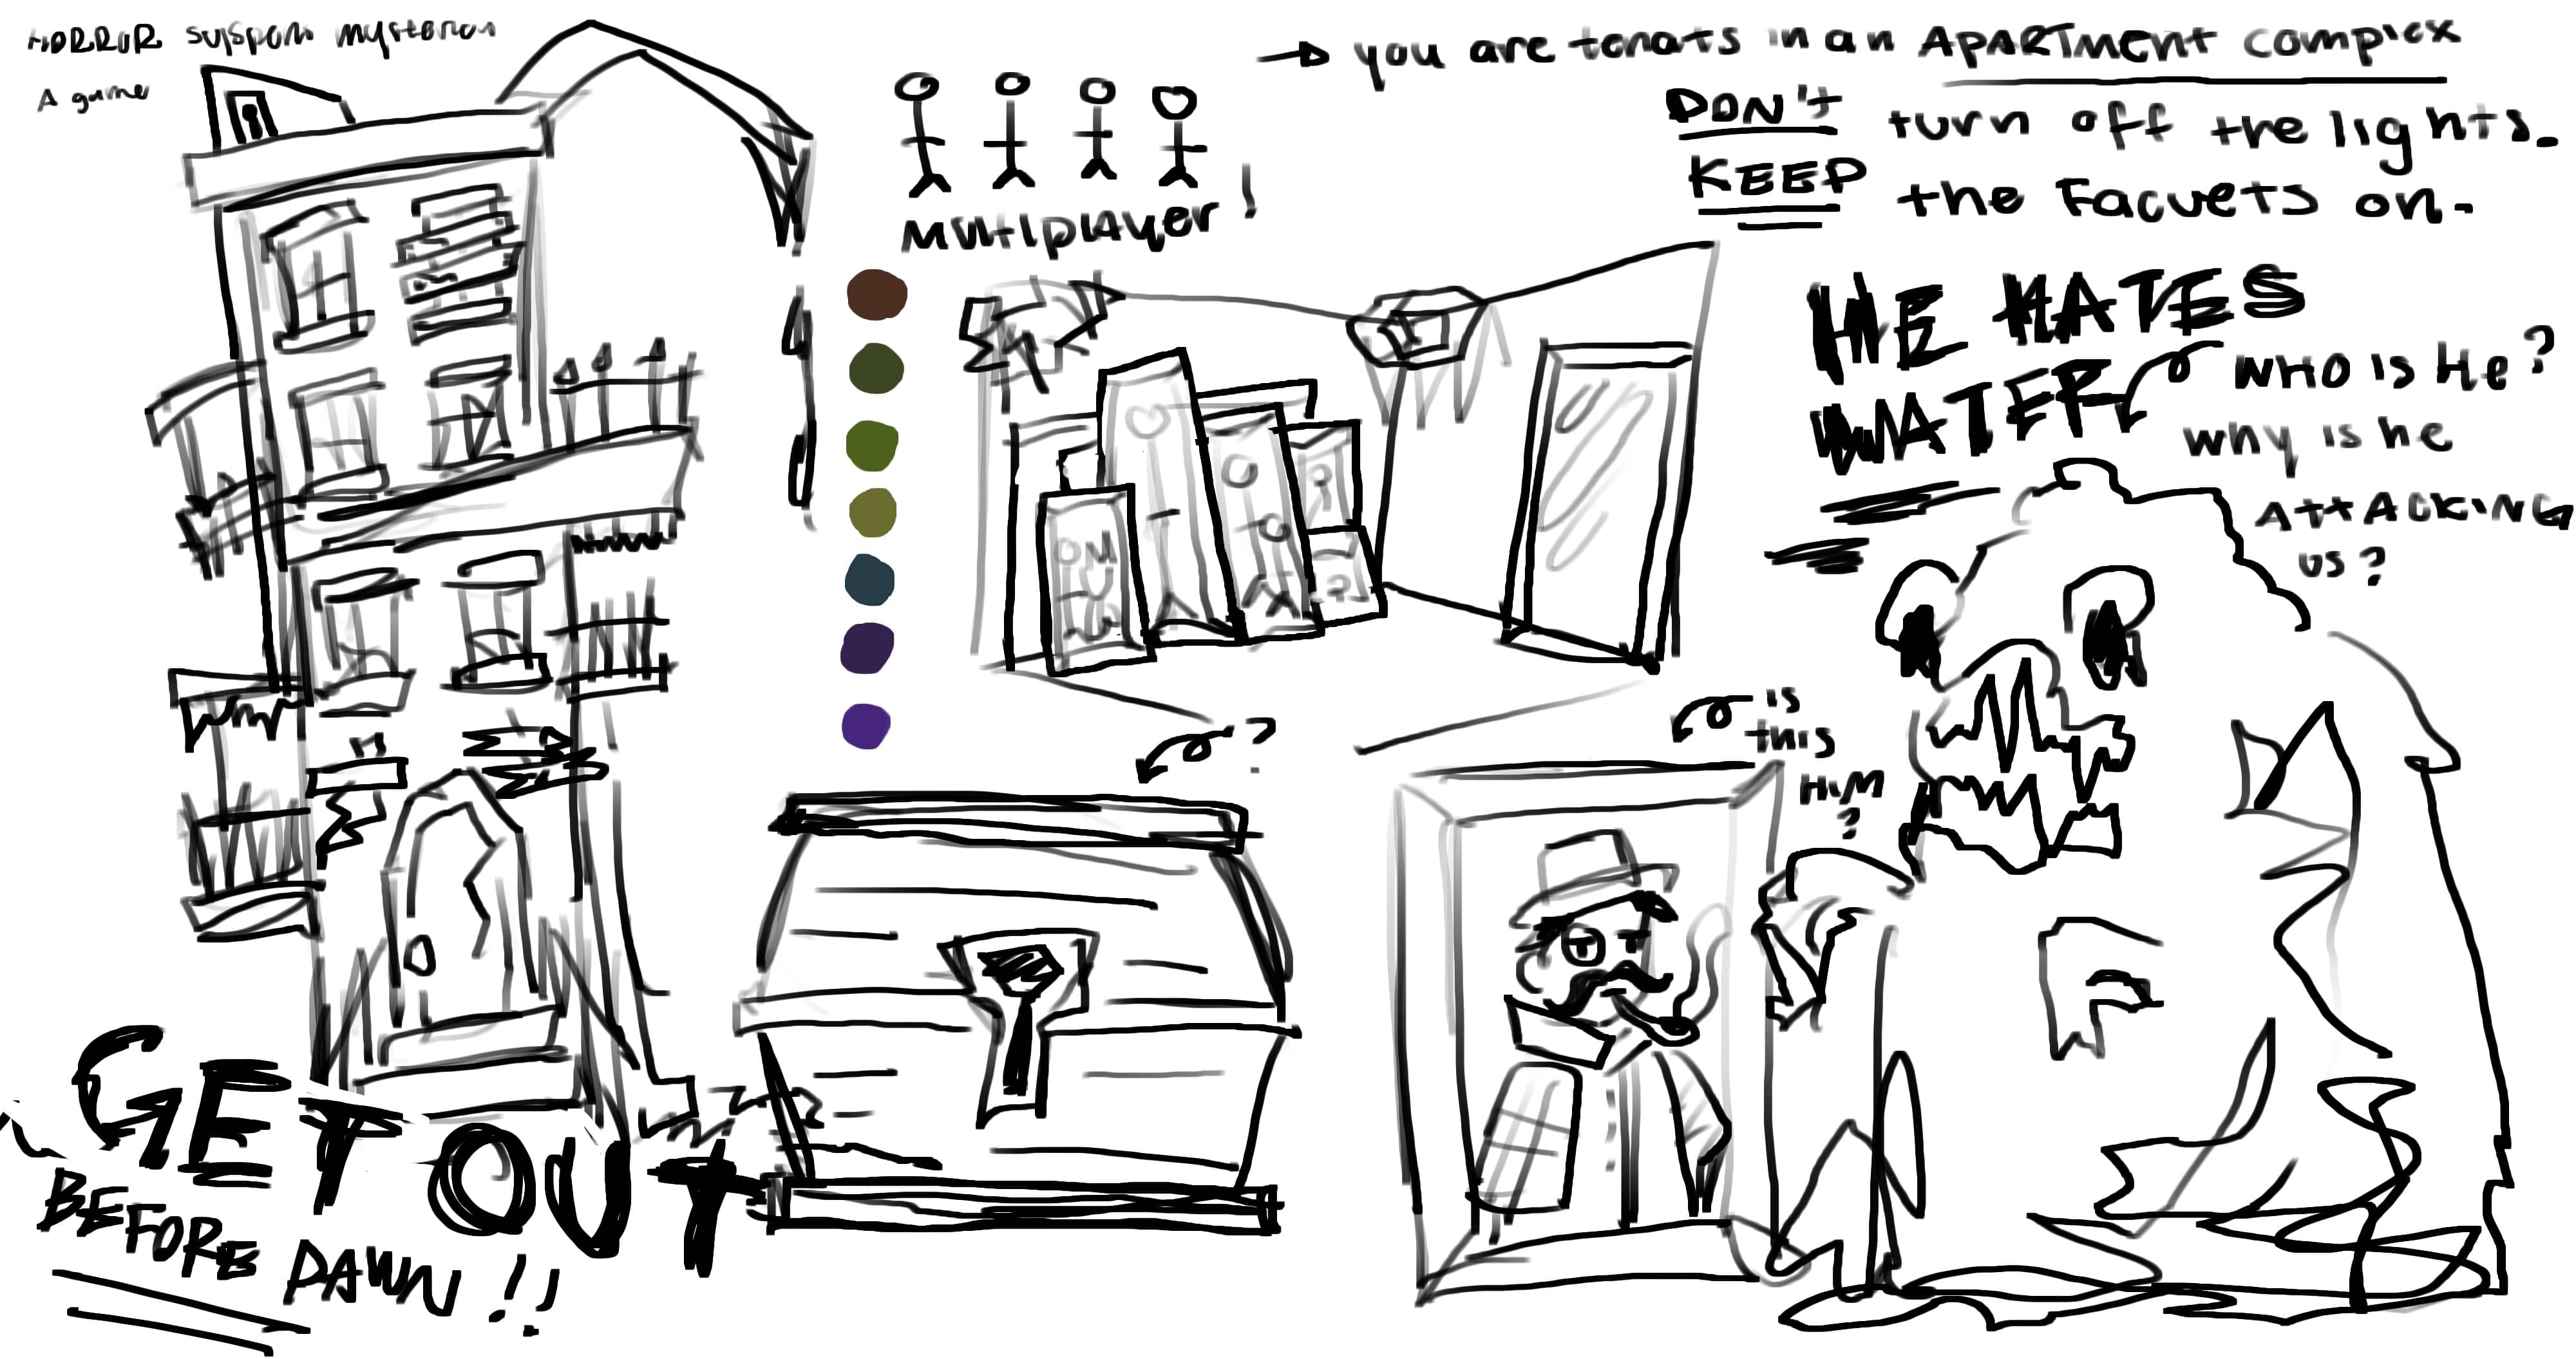 HORROR suspons mysteron
A game
→ you are tenats in an APARTment complex
DON't turn off the lights.
KEEP the Facuets on.
multiplayer!
HE HATES
WATER
WHO is He?
why is he
AttACKING
us?
?
is
this
HIM
?
GET OUT
BEFORE DAWN!!